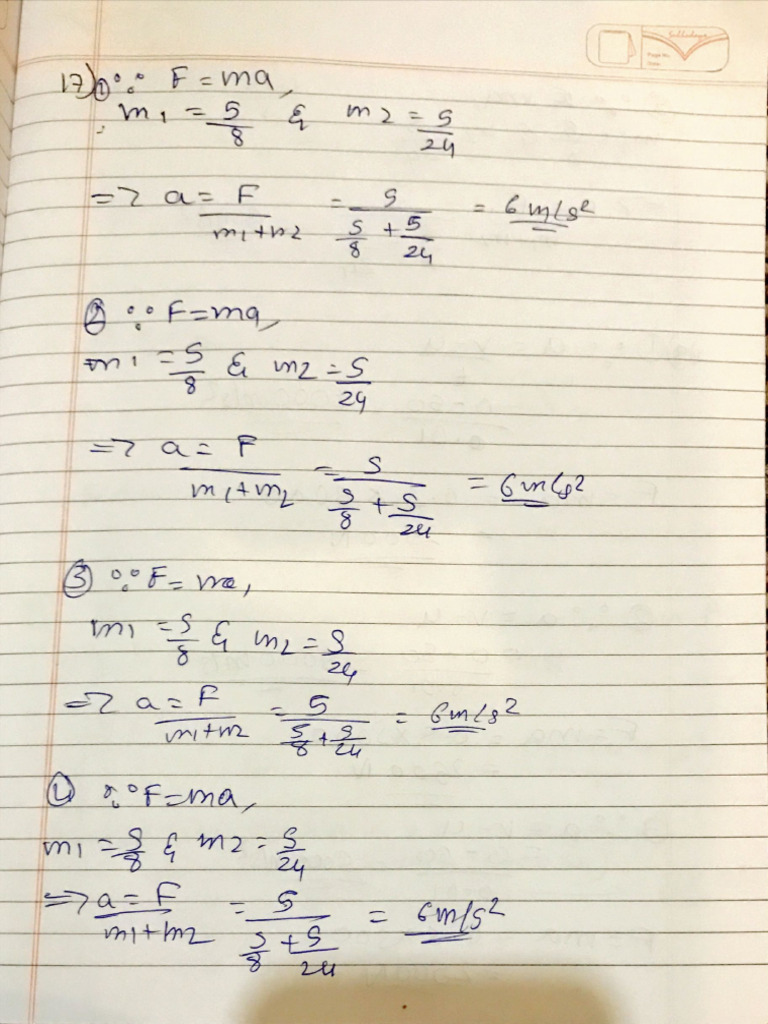 17) ① ∵ F = ma,
∴ m1 = 5/8 & m2 = 5/24
=> a = F/(m1+m2) = 5/(5/8 + 5/24) = 6 m/s²
② ∵ F = ma,
m1 = 5/8 & m2 = 5/24
=> a = F/(m1+m2) = 5/(5/8 + 5/24) = 6 m/s²
③ ∵ F = ma,
m1 = 5/8 & m2 = 5/24
=> a = F/(m1+m2) = 5/(5/8 + 5/24) = 6 m/s²
④ ∵ F = ma,
m1 = 5/8 & m2 = 5/24
=> a = F/(m1+m2) = 5/(5/8 + 5/24) = 6 m/s²